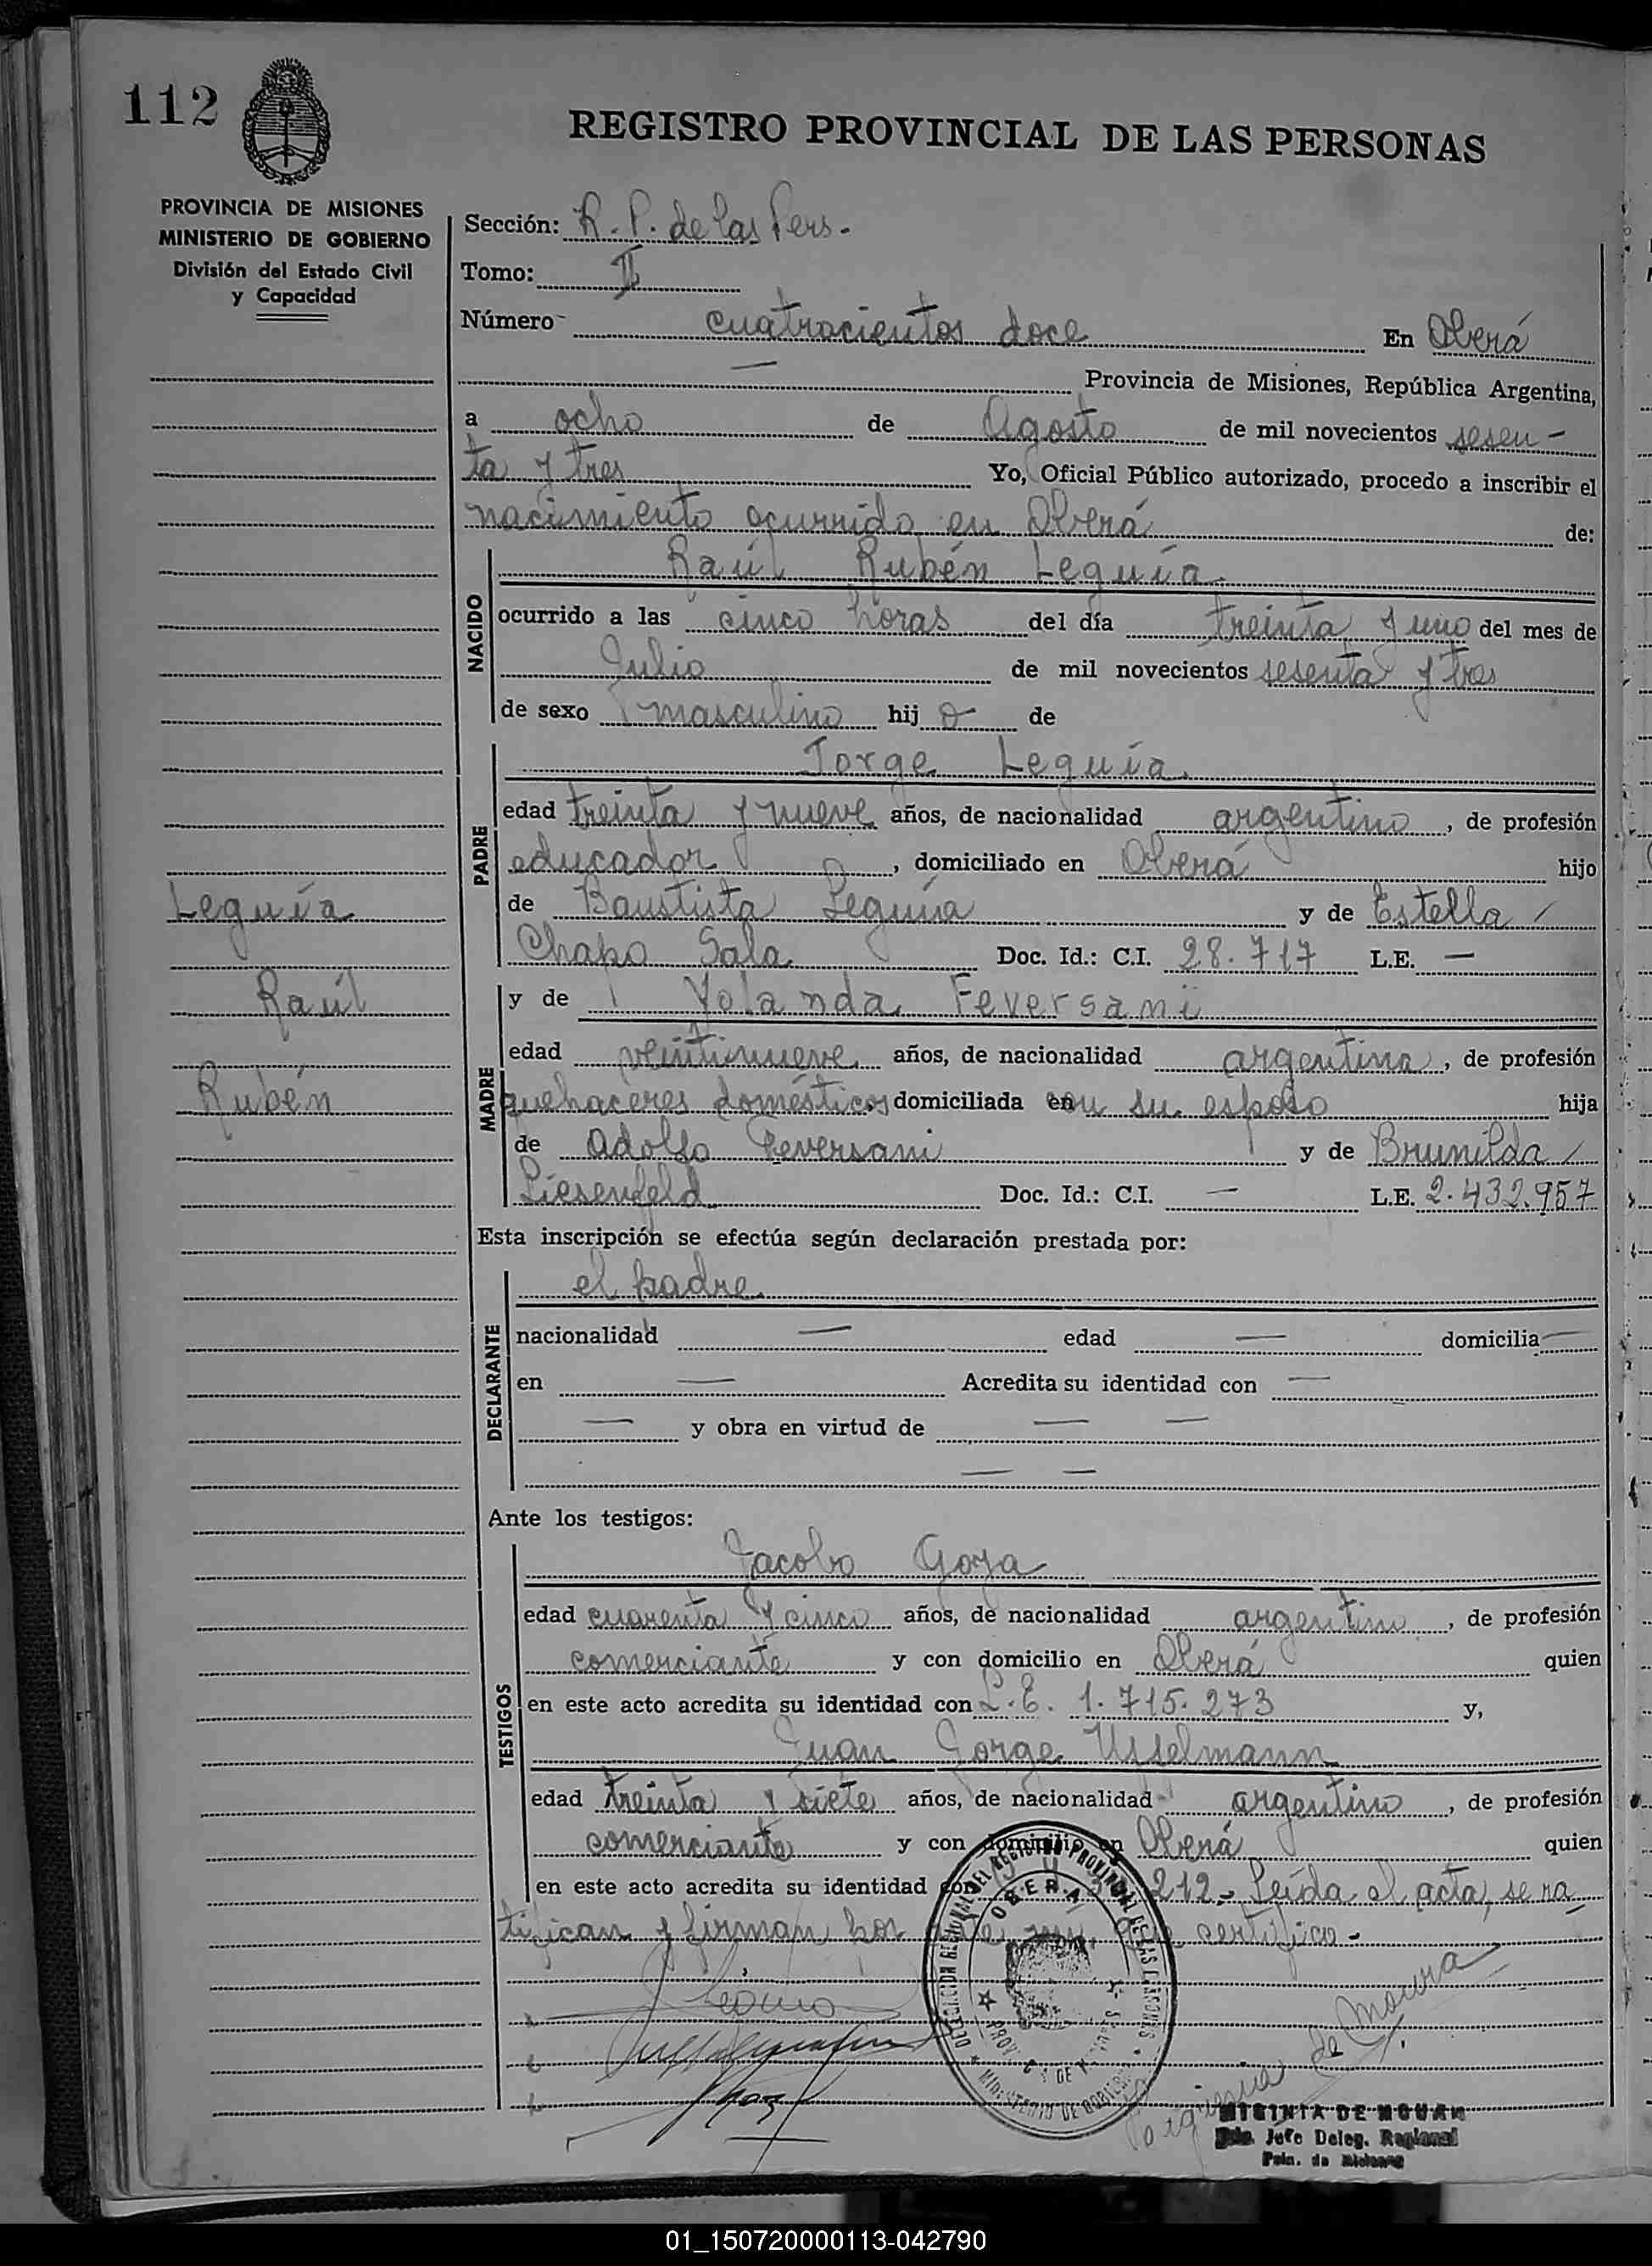 112
REGISTRO PROVINCIAL DE LAS PERSONAS
PROVINCIA DE MISIONES
MINISTERIO DE GOBIERNO
División del Estado Civil
y Capacidad
Sección: R. P. de las Pers.
Tomo: II
Número cuatrocientos doce En Oberá
— Provincia de Misiones, República Argentina,
a ocho de Agosto de mil novecientos sesen-
ta y tres Yo, Oficial Público autorizado, procedo a inscribir el
nacimiento ocurrido en Oberá de:
NACIDO
Raúl Rubén Leguía
ocurrido a las cinco horas del día treinta y uno del mes de
Julio de mil novecientos sesenta y tres
de sexo masculino hijo de
PADRE
Jorge Leguía
edad treinta y nueve años, de nacionalidad argentino, de profesión
educador, domiciliado en Oberá hijo
de Bautista Leguía y de Estella
Chapo Sala Doc. Id.: C.I. 28.717 L.E. —
Leguía
Raúl
Rubén
MADRE
y de Yolanda Feversani
edad veintinueve años, de nacionalidad argentina, de profesión
quehaceres domésticos domiciliada en su esposo hija
de Adolfo Feversani y de Brunilda
Liesenfeld Doc. Id.: C.I. — L.E. 2.432.957
Esta inscripción se efectúa según declaración prestada por:
DECLARANTE
el padre
nacionalidad — edad — domicilia —
en — Acredita su identidad con —
— y obra en virtud de — —
— —
Ante los testigos:
TESTIGOS
Jacobo Goya
edad cuarenta y cinco años, de nacionalidad argentino, de profesión
comerciante y con domicilio en Oberá quien
en este acto acredita su identidad con L.E. 1.715.273 y,
Juan Jorge Usselmann
edad treinta y siete años, de nacionalidad argentino, de profesión
comerciante y con domicilio en Oberá quien
en este acto acredita su identidad con 212.- Leída el acta, se ra
tifican y firman por certifico.-
OBERA
de Moura
DE MOURA
Jefe Deleg. Regional
Pcia. de Misiones
01_150720000113-042790